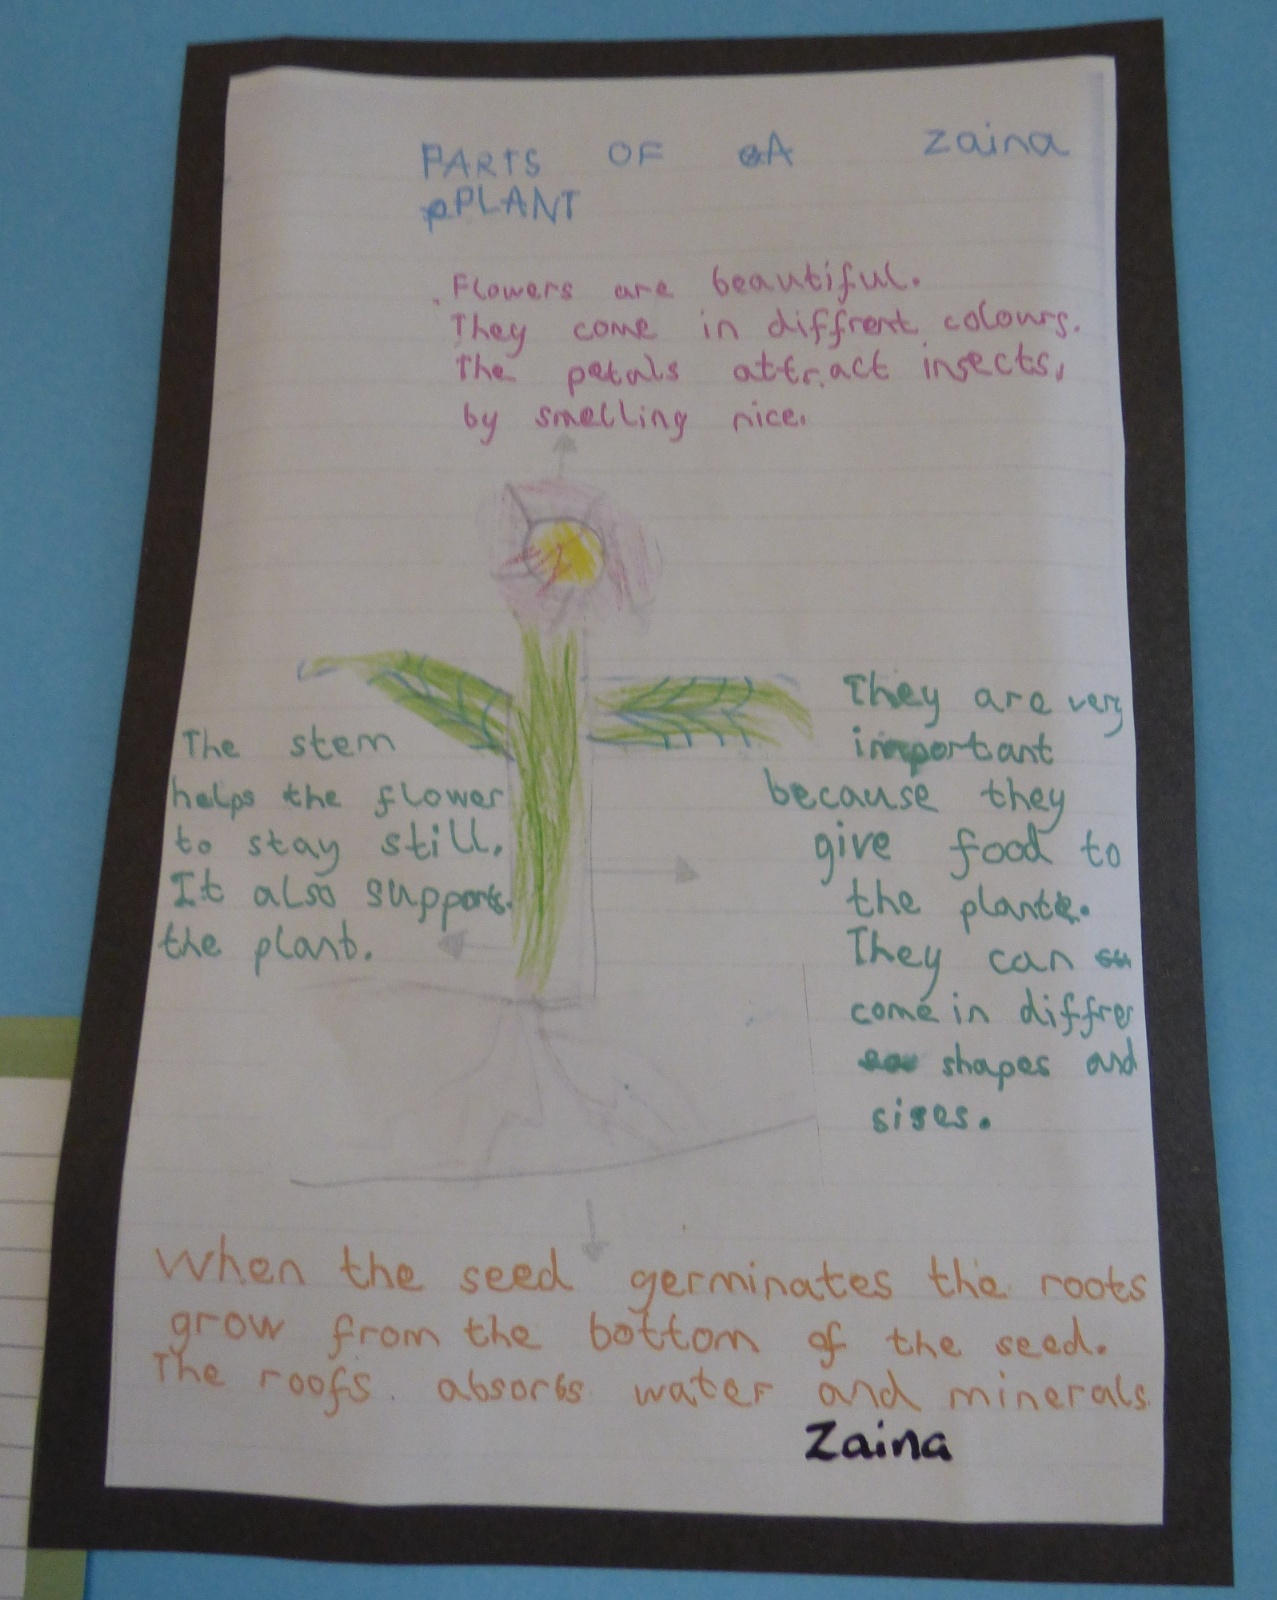 PARTS OF A Zaina
PLANT
Flowers are beautiful.
They come in diffrent colours.
The petals attract insects,
by smelling nice.
The stem
helps the flower
to stay still.
It also supports
the plant.
They are very
important
because they
give food to
the plant.
They can
come in diffre
shapes and
sises.
When the seed germinates the roots
grow from the bottom of the seed.
The roofs absorbs water and minerals.
Zaina